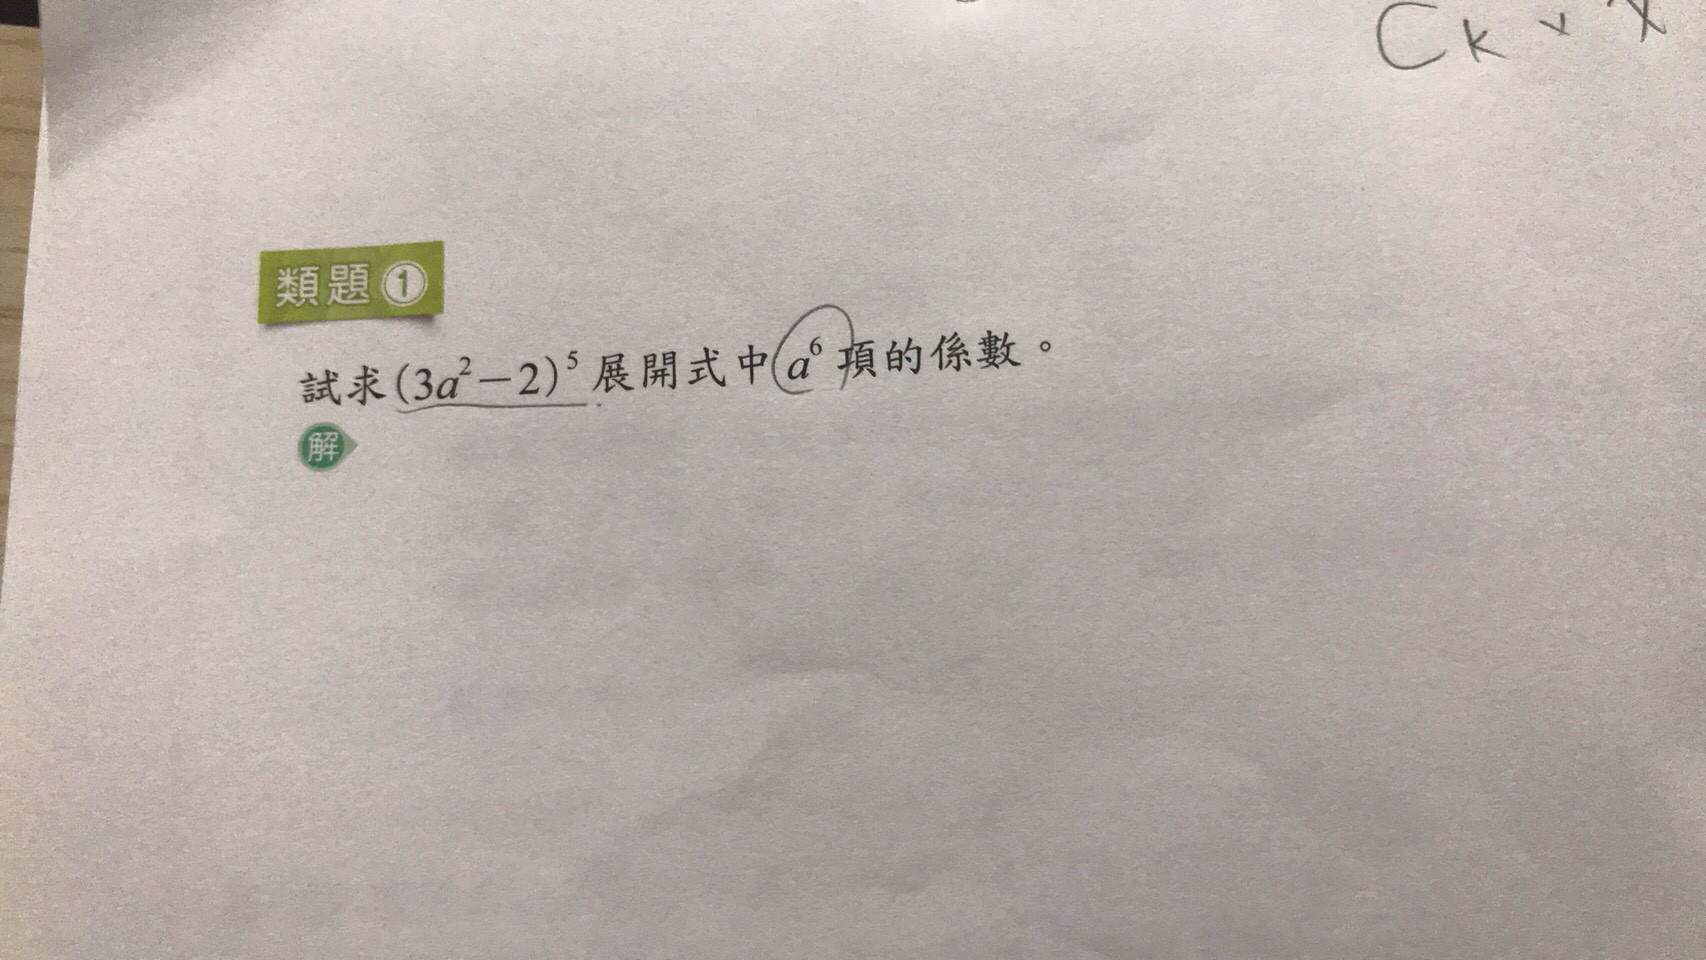 Ck
類題①
試求(3a²－2)⁵展開式中a⁶項的係數。
解